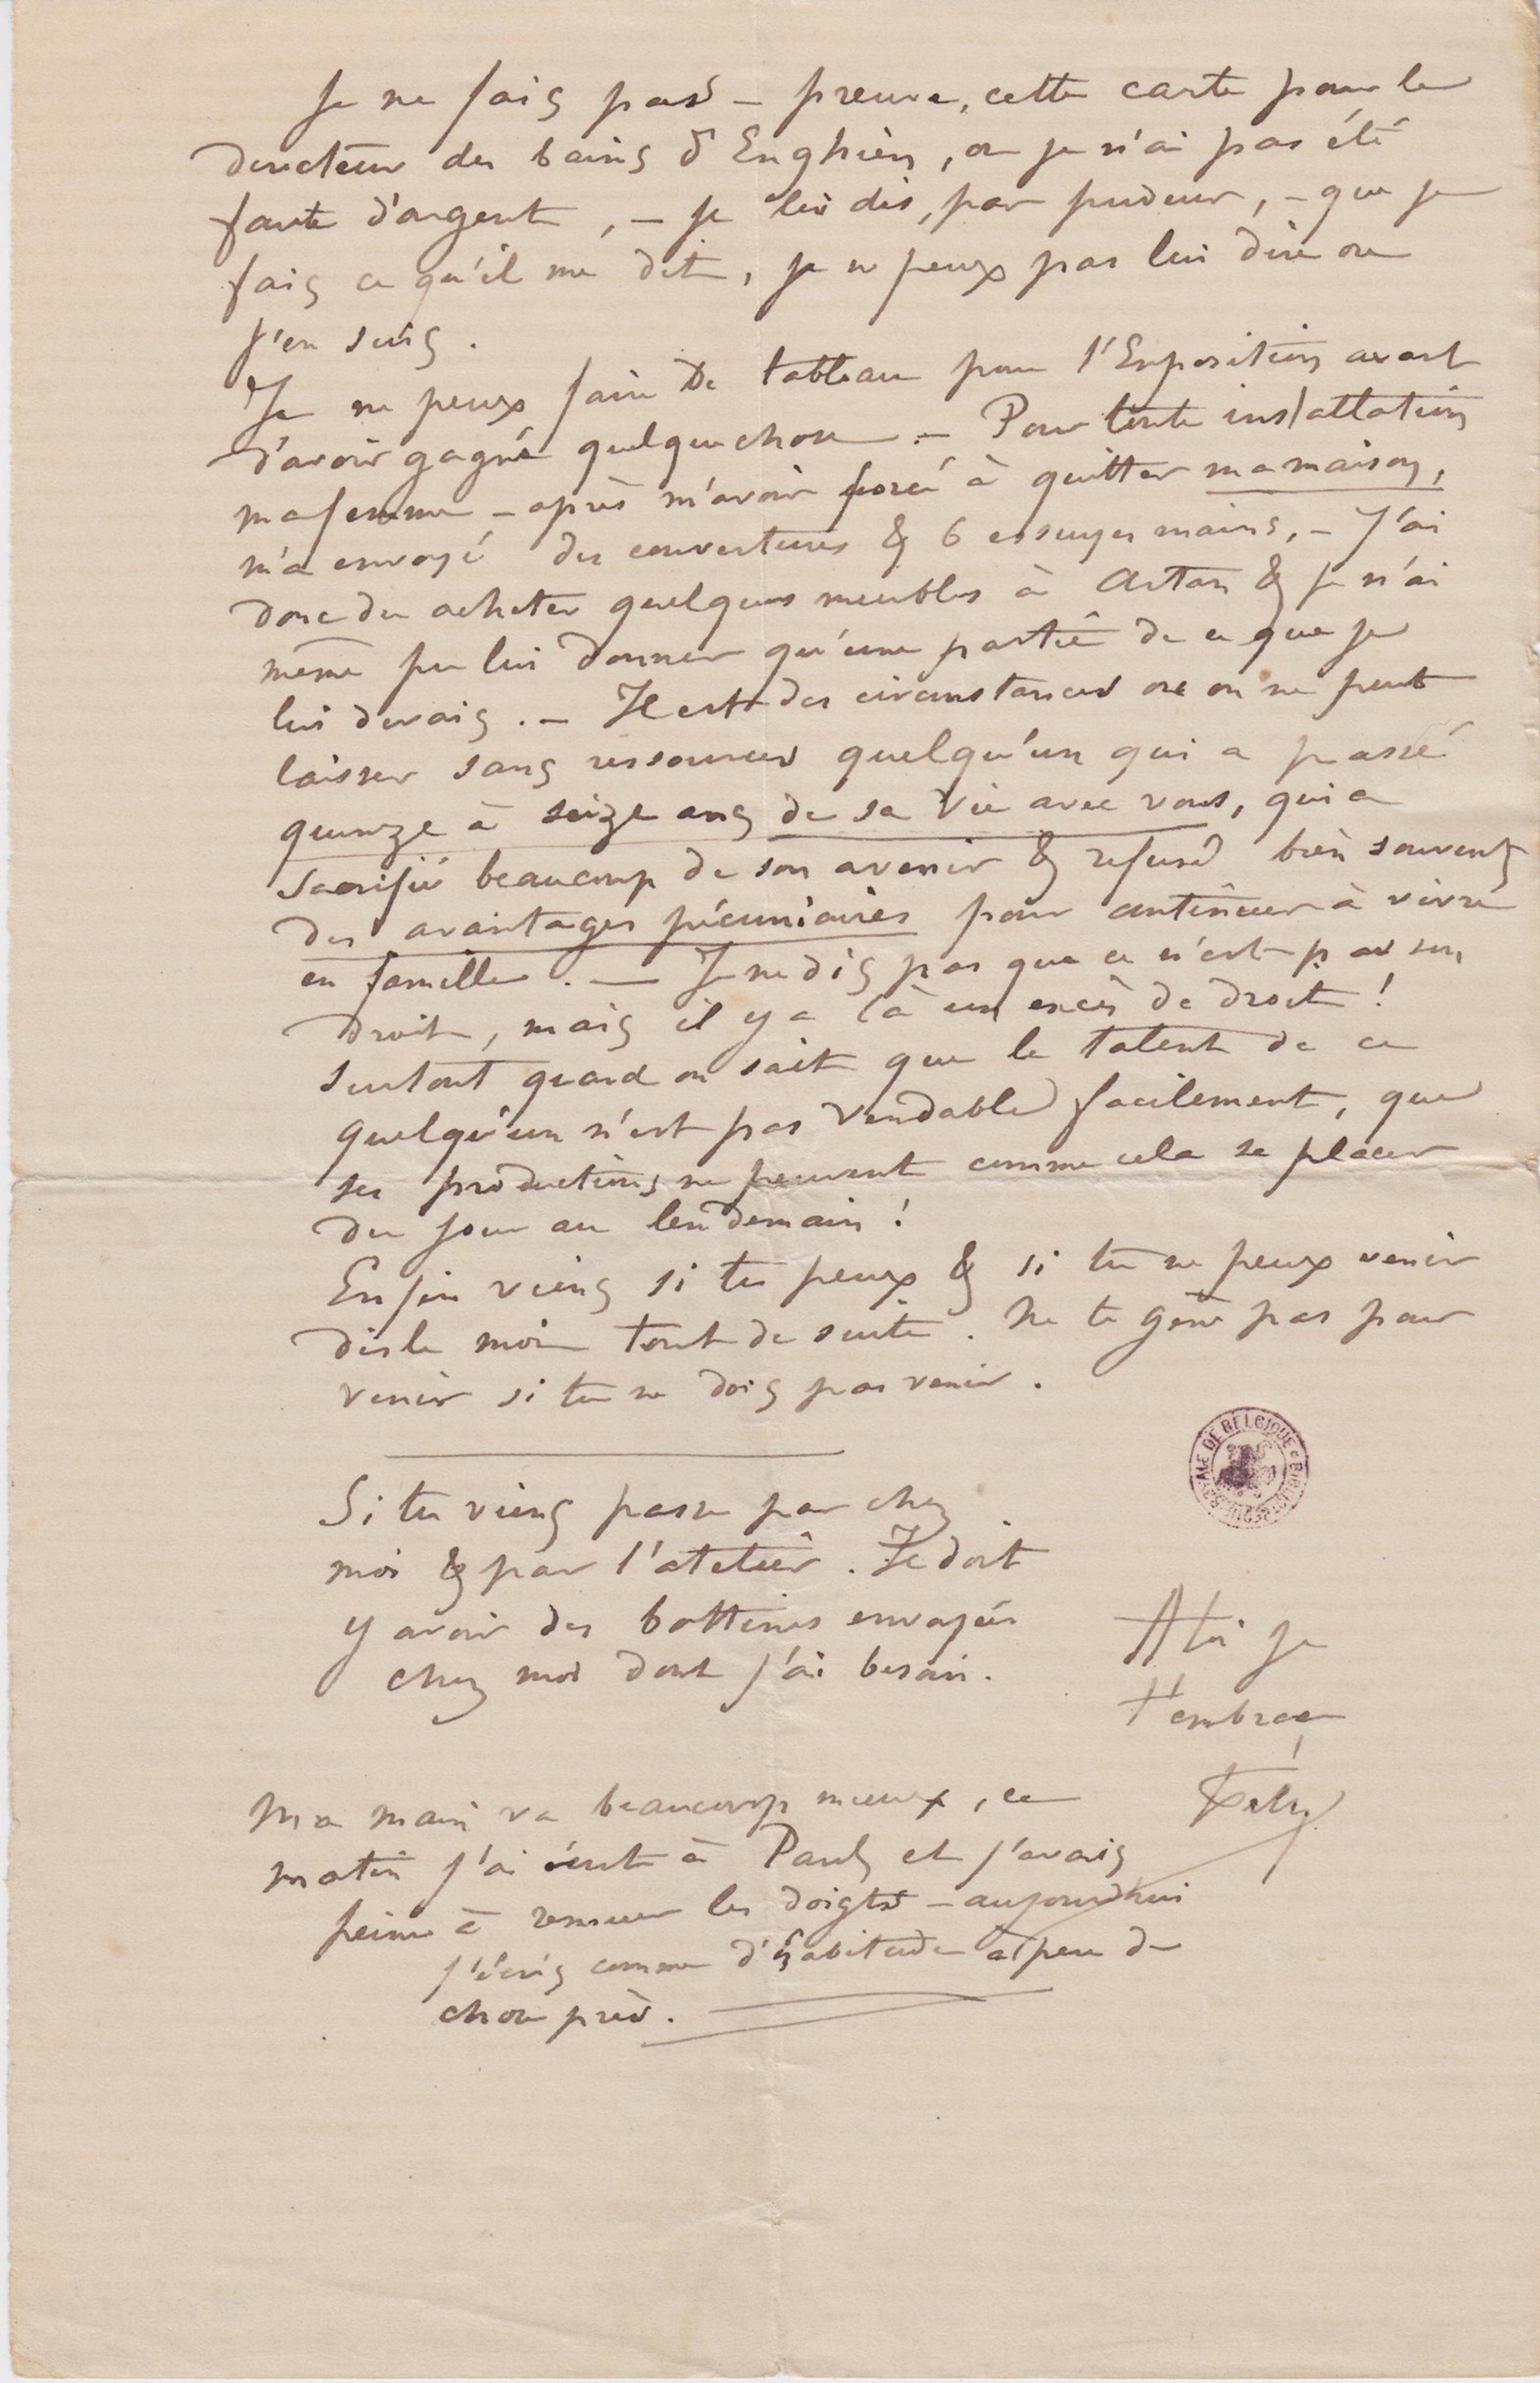 Je ne fais pas – preuve, cette carte pour le
directeur des bains d'Enghien, ou je n'ai pas été
faute d'argent, – je lui dis, par pudeur, – que je
fais ce qu'il me dit, je ne peux pas lui dire ou
j'en suis.
Je ne peux faire de tableau pour l'Exposition avant
d'avoir gagné quelque chose – Pour toute installation
ma femme – après m'avoir forcé à quitter ma maison,
m'a envoyé des couvertures & 6 essuyes mains, – J'ai
donc du acheter quelques meubles à Artan & je n'ai
même pu lui donner qu'une partie de ce que je
lui devais. – Il est des circonstances ou on ne peut
laisser sans ressources quelqu'un qui a passé
quinze à seize ans de sa vie avec vous, qui a
sacrifié beaucoup de son avenir & refusé bien souvent
des avantages pécuniaires pour continuer à vivre
en famille. – Je ne dis pas que ce n'est pas son
droit, mais il y a là un excès de droit!
surtout quand on sait que le talent de ce
quelqu'un n'est pas vendable facilement, que
ses productions ne peuvent comme cela se placer
du jour au lendemain!
Enfin viens si tu peux & si tu ne peux venir
dis le moi tout de suite. Ne te gêne pas pour
venir si tu ne dois pas venir.
Si tu viens passe par chez
moi & par l'atelier. Il doit
y avoir des bottines envoyées
chez moi dont j'ai besoin.
A toi je
t'embrasse
Fély
Ma main va beaucoup mieux, ce
matin j'ai écrit à Paul et j'avais
peine à remuer les doigts – aujourdhui
j'écris comme d'habitude à peu de
chose près.
BIBLIOTHEQUE ROYALE DE BELGIQUE